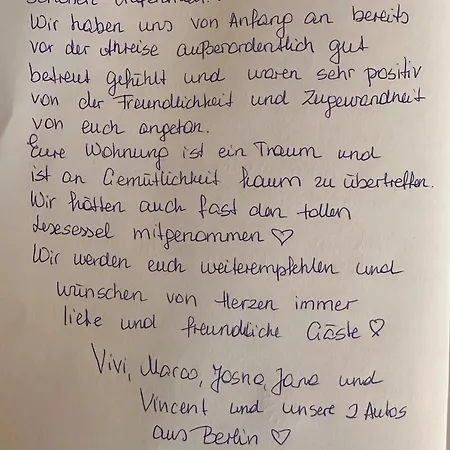 Wir haben uns von Anfang an bereits
vor der Anreise außerordentlich gut
betreut gefühlt und waren sehr positiv
von der Freundlichkeit und Zugewandheit
von euch angetan.
Eure Wohnung ist ein Traum und
ist an Gemütlichkeit kaum zu übertreffen.
Wir hätten auch fast den tollen
Lesesessel mitgenommen ♡
Wir werden euch weiterempfehlen und
wünschen von Herzen immer
liebe und freundliche Gäste ♡
Vivi, Marco, Josna, Jana und
Vincent und unsere 2 Autos
aus Berlin ♡